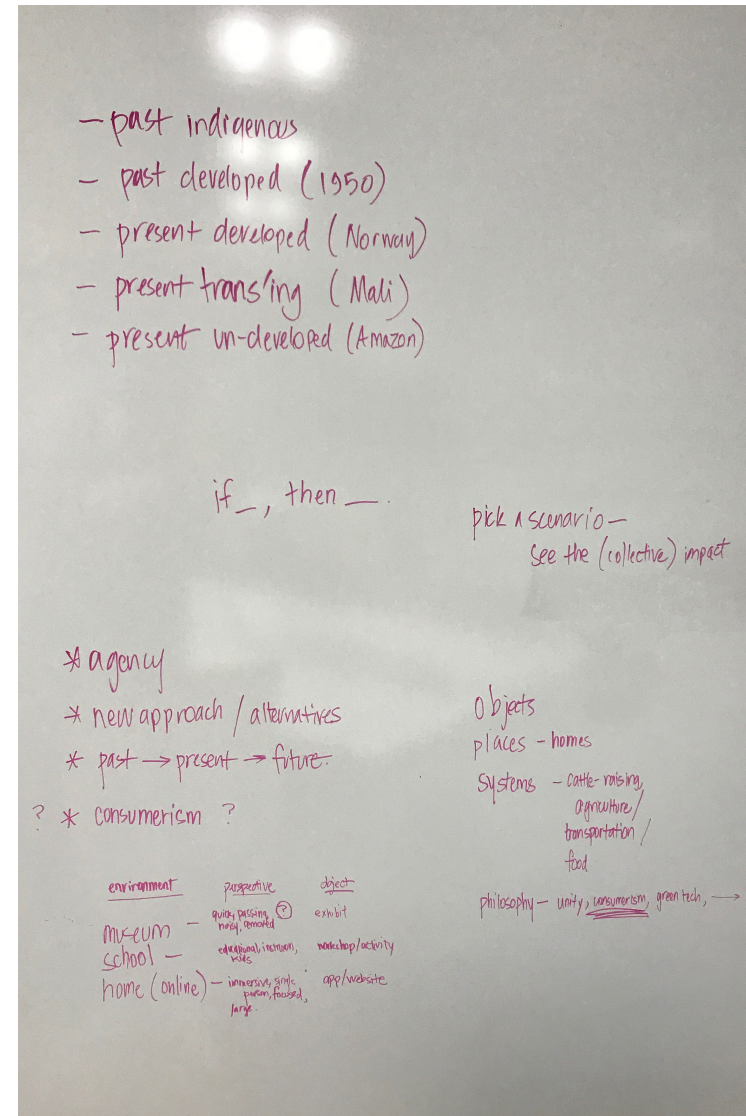 - past indigenous
- past developed (1950)
- present developed (Norway)
- present trans'ing (Mali)
- present un-developed (Amazon)
if _, then _.
pick a scenario -
see the (collective) impact
* agency
* new approach / alternatives
* past → present → future.
? * consumerism ?
objects
places - homes
systems - cattle-raising,
agriculture /
transportation /
food
philosophy - unity, consumerism, green tech, →
environment perspective object
museum - quick, passing, ? exhibit
noisy, removed
school - educational, kids workshop/activity
home (online) - immersive, single app/website
person, focused,
large.